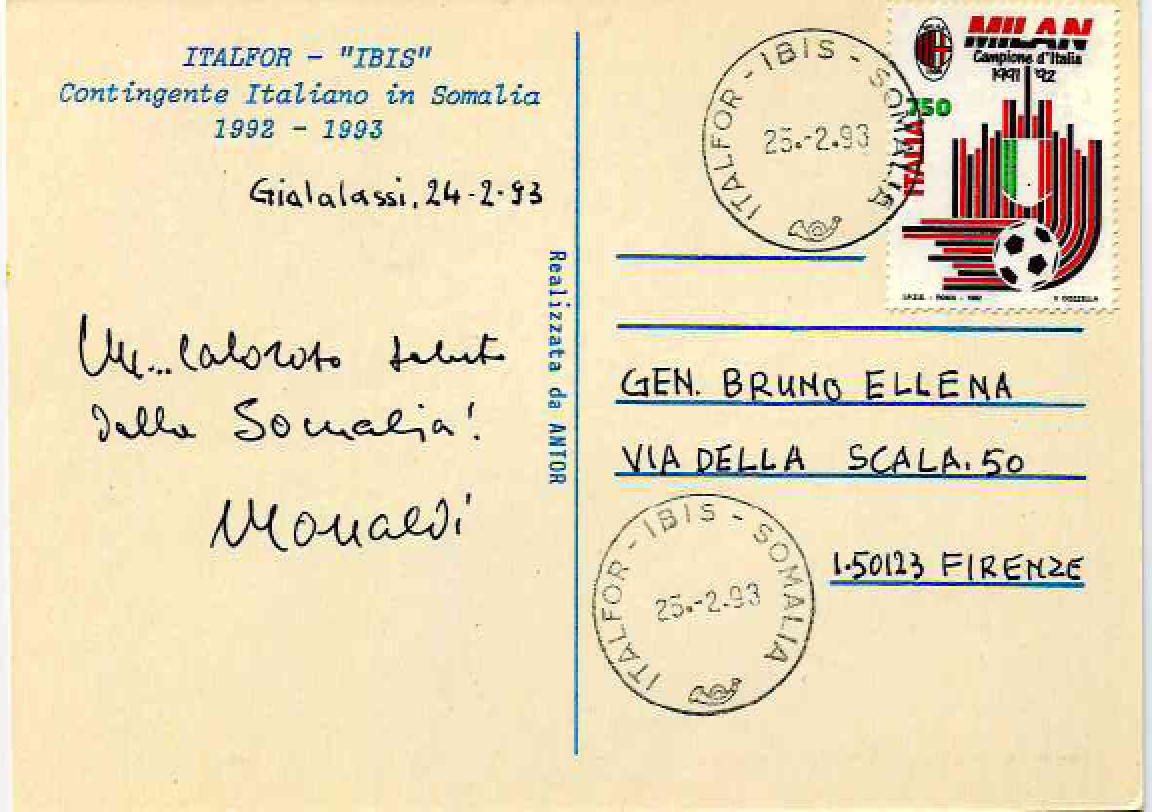 ITALFOR - "IBIS"
Contingente Italiano in Somalia
1992 - 1993
Gialalassi, 24-2-93
Un... caloroso saluto
dalla Somalia!
Monaldi
Realizzata da ANTOR
ITALFOR - IBIS - SOMALIA
25.-2.93
MILAN
Campione d'Italia
1991 '92
750
ITALIA
I.P.Z.S. - ROMA - 1992
GEN. BRUNO ELLENA
VIA DELLA SCALA. 50
I-50123 FIRENZE
ITALFOR - IBIS - SOMALIA
25.-2.93